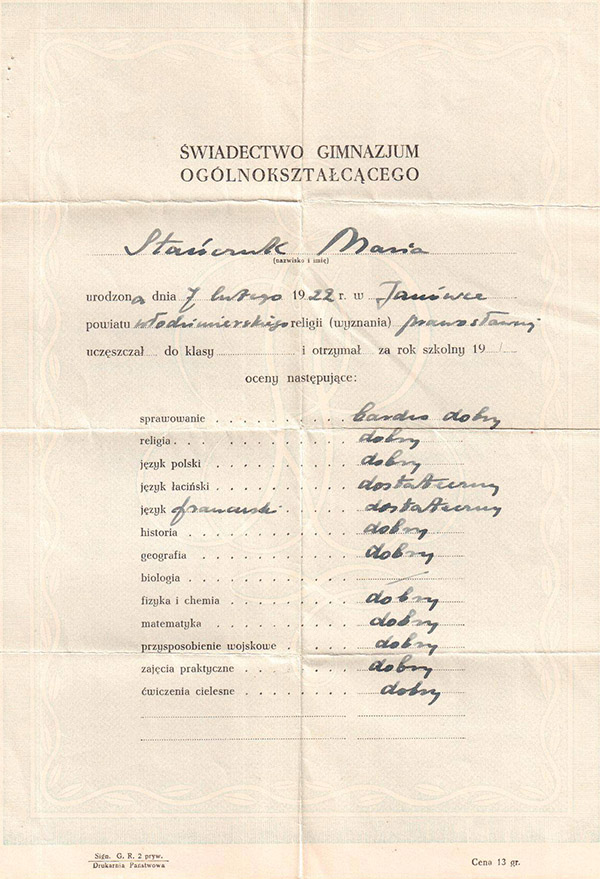 ŚWIADECTWO GIMNAZJUM
OGÓLNOKSZTAŁCĄCEGO
Stańczuk Maria
(nazwisko i imię)
urodzona dnia 7 lutego 1922 r. w Janówce
powiatu włodzimierskiego religii (wyznania) prawosławnej
uczęszczał do klasy i otrzymał za rok szkolny 19
oceny następujące:
sprawowanie bardzo dobry
religia dobry
język polski dobry
język łaciński dostateczny
język francuski dostateczny
historia dobry
geografia dobry
biologia —
fizyka i chemia dobry
matematyka dobry
przysposobienie wojskowe dobry
zajęcia praktyczne dobry
ćwiczenia cielesne dobry
Sign. G. R. 2 pryw.
Drukarnia Państwowa
Cena 13 gr.